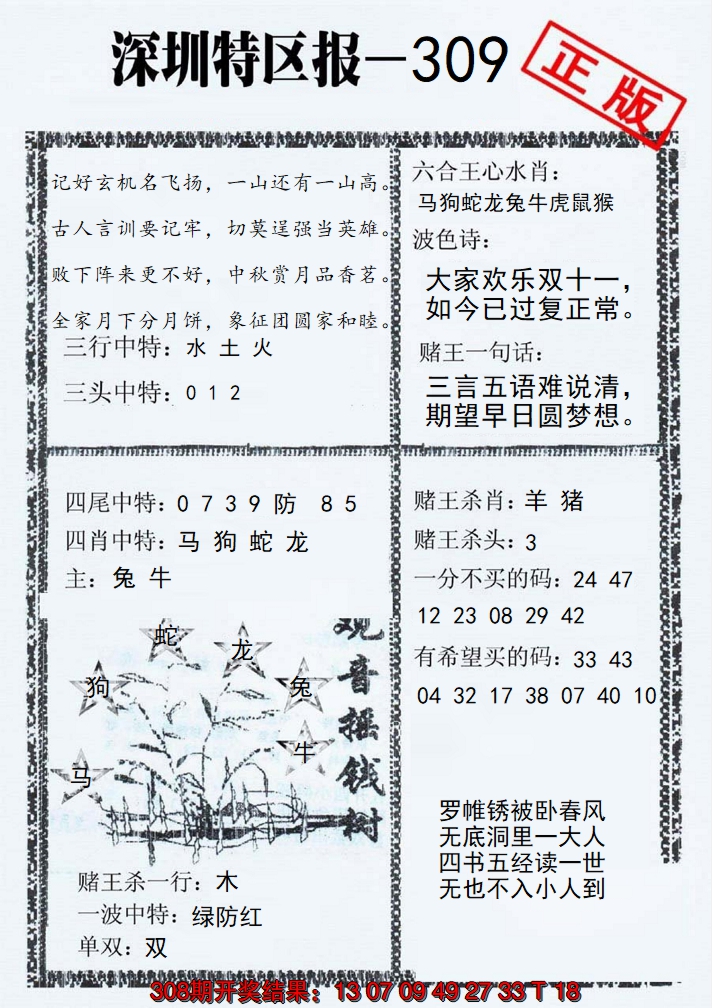 深圳特区报—309
正版
记好玄机名飞扬，一山还有一山高。
古人言训要记牢，切莫逞强当英雄。
败下阵来更不好，中秋赏月品香茗。
全家月下分月饼，象征团圆家和睦。
三行中特：水 土 火
三头中特：0 1 2
六合王心水肖：
马狗蛇龙兔牛虎鼠猴
波色诗：
大家欢乐双十一，
如今已过复正常。
赌王一句话：
三言五语难说清，
期望早日圆梦想。
四尾中特：0 7 3 9 防 8 5
四肖中特：马 狗 蛇 龙
主：兔 牛
蛇
龙
狗
兔
牛
马
观音摇钱树
赌王杀一行：木
一波中特：绿防红
单双：双
赌王杀肖：羊 猪
赌王杀头：3
一分不买的码：24 47
12 23 08 29 42
有希望买的码：33 43
04 32 17 38 07 40 10
罗帷锈被卧春风
无底洞里一大人
四书五经读一世
无也不入小人到
308期开奖结果：13 07 09 49 27 33 T 18